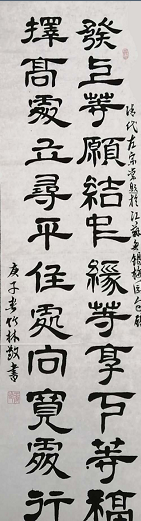 清代左宗棠題於江蘇無錫梅園
發上等願結中緣等享下等福
擇高處立尋平住處向寬處行
庚子春竹林敬書